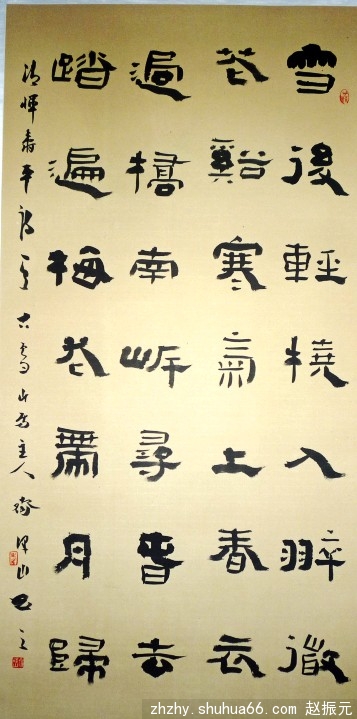 雪後輕橈入翠微
花谿寒氣上春衣
過橋南岸尋旾去
踏遍梅花帶月歸
清惲壽平詩 山房主人
zhzhy.shuhua66.com 赵振元